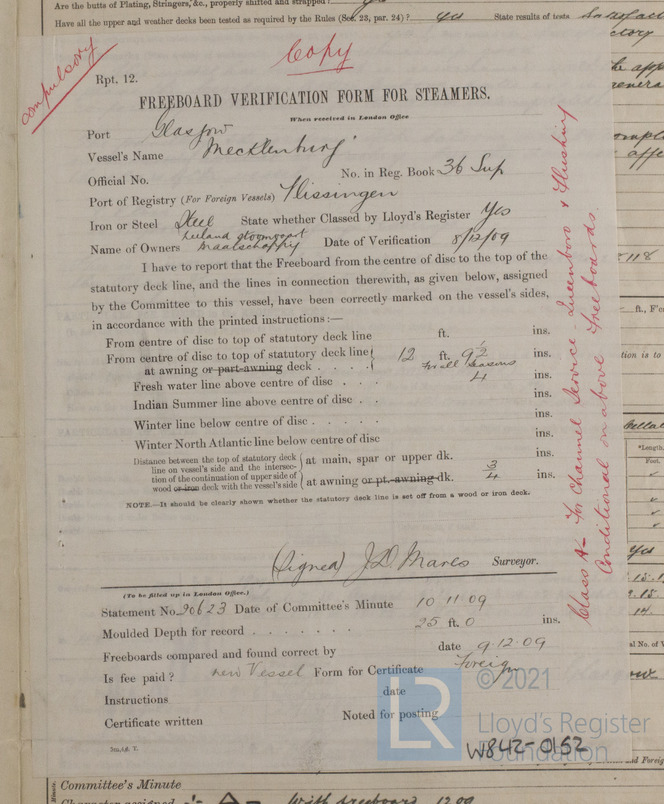 Are the butts of Plating, Stringers, &c., properly shifted and strapped?
Have all the upper and weather decks been tested as required by the Rules (Sec. 23, par. 24)? Yes State results of tests Satisfac
ctory
compulsory
Copy
Rpt. 12.
FREEBOARD VERIFICATION FORM FOR STEAMERS.
When received in London Office
Port Glasgow
Vessel's Name "Mecklenburg"
Official No. No. in Reg. Book 36 Sup
Port of Registry (For Foreign Vessels) Flissingen
Iron or Steel Steel State whether Classed by Lloyd's Register Yes
Name of Owners Zeeland Stoomvaart Maatschappij Date of Verification 8/12/09
I have to report that the Freeboard from the centre of disc to the top of the
statutory deck line, and the lines in connection therewith, as given below, assigned
by the Committee to this vessel, have been correctly marked on the vessel's sides,
in accordance with the printed instructions:—
From centre of disc to top of statutory deck line ft. ins.
From centre of disc to top of statutory deck line
at awning or part-awning deck . . . . 12 ft. 9½ ins.
for all seasons
Fresh water line above centre of disc . . . 4 ins.
Indian Summer line above centre of disc . . ins.
Winter line below centre of disc . . . . . ins.
Winter North Atlantic line below centre of disc ins.
Distance between the top of statutory deck
line on vessel's side and the intersec-
tion of the continuation of upper side of
wood or iron deck with the vessel's side
at main, spar or upper dk. ins.
at awning or pt.-awning dk. ¾ ins.
NOTE.—It should be clearly shown whether the statutory deck line is set off from a wood or iron deck.
(Signed) J.D. Mares Surveyor.
(To be filled up in London Office.)
Statement No. 90623 Date of Committee's Minute 10 11 09
Moulded Depth for record . . . . . . . 25 ft. 0 ins.
Freeboards compared and found correct by date 9.12.09
Is fee paid? new Vessel Form for Certificate Foreign
Instructions date
Certificate written Noted for posting
Class A— for Channel Service - Queenboro & Flushing
Conditional on above freeboards.
LR
© 2021
Lloyd's Register
Foundation
W842-0152
Committee's Minute
Character assigned
With freeboard 12 09